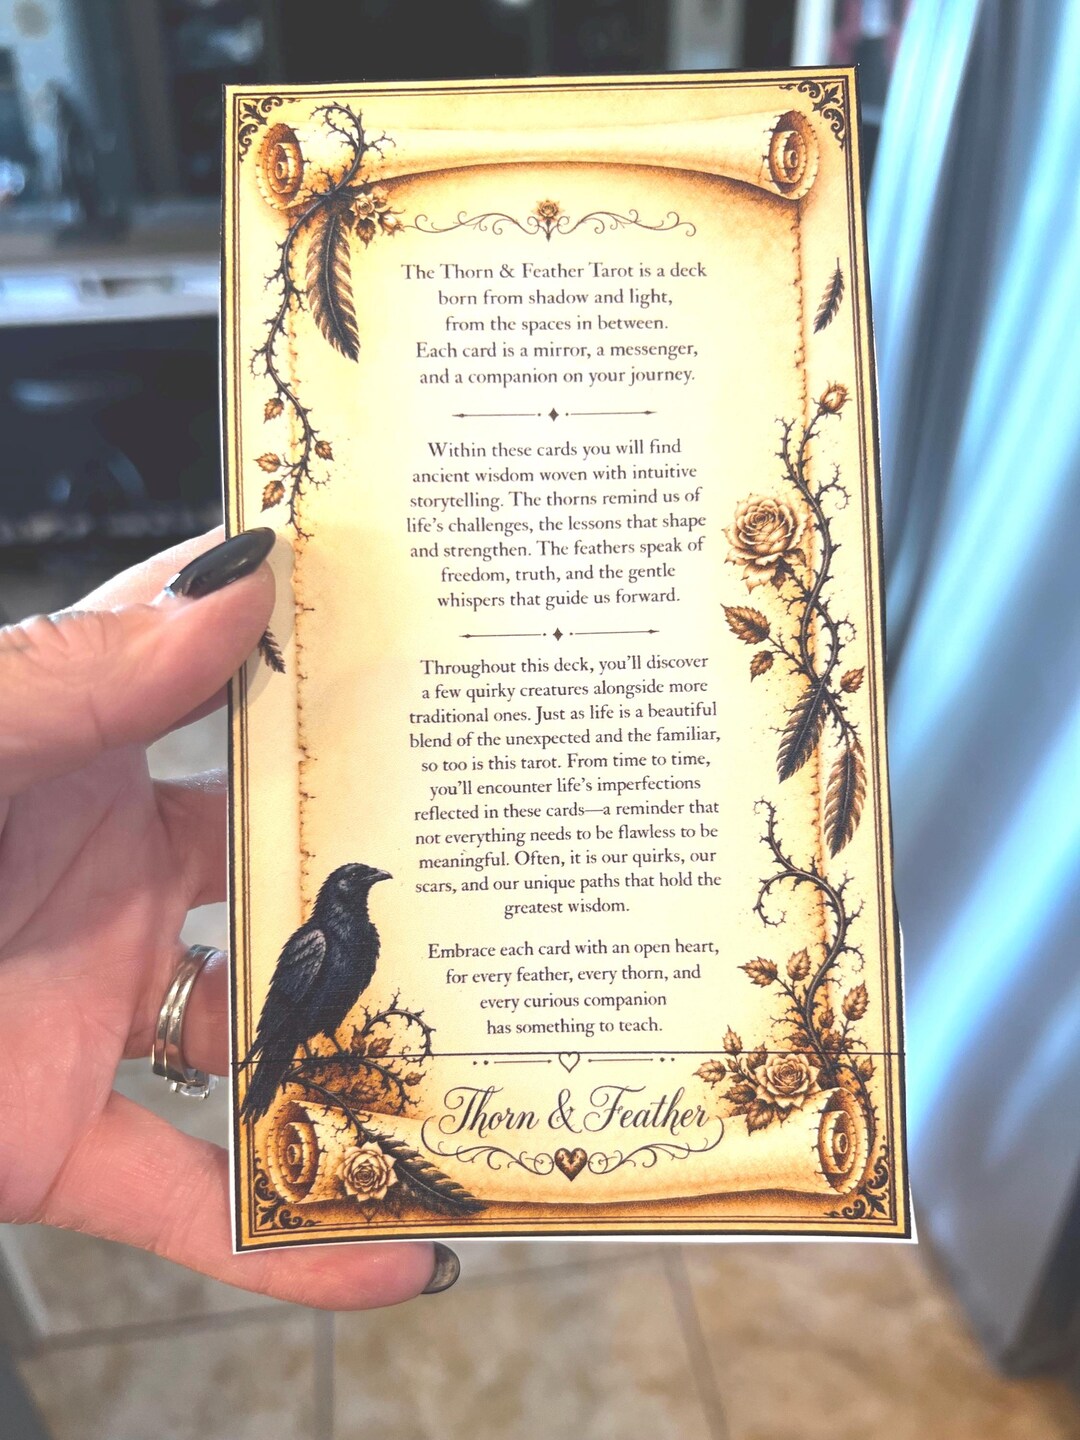 The Thorn & Feather Tarot is a deck
born from shadow and light,
from the spaces in between.
Each card is a mirror, a messenger,
and a companion on your journey.
Within these cards you will find
ancient wisdom woven with intuitive
storytelling. The thorns remind us of
life's challenges, the lessons that shape
and strengthen. The feathers speak of
freedom, truth, and the gentle
whispers that guide us forward.
Throughout this deck, you'll discover
a few quirky creatures alongside more
traditional ones. Just as life is a beautiful
blend of the unexpected and the familiar,
so too is this tarot. From time to time,
you'll encounter life's imperfections
reflected in these cards—a reminder that
not everything needs to be flawless to be
meaningful. Often, it is our quirks, our
scars, and our unique paths that hold the
greatest wisdom.
Embrace each card with an open heart,
for every feather, every thorn, and
every curious companion
has something to teach.
Thorn & Feather